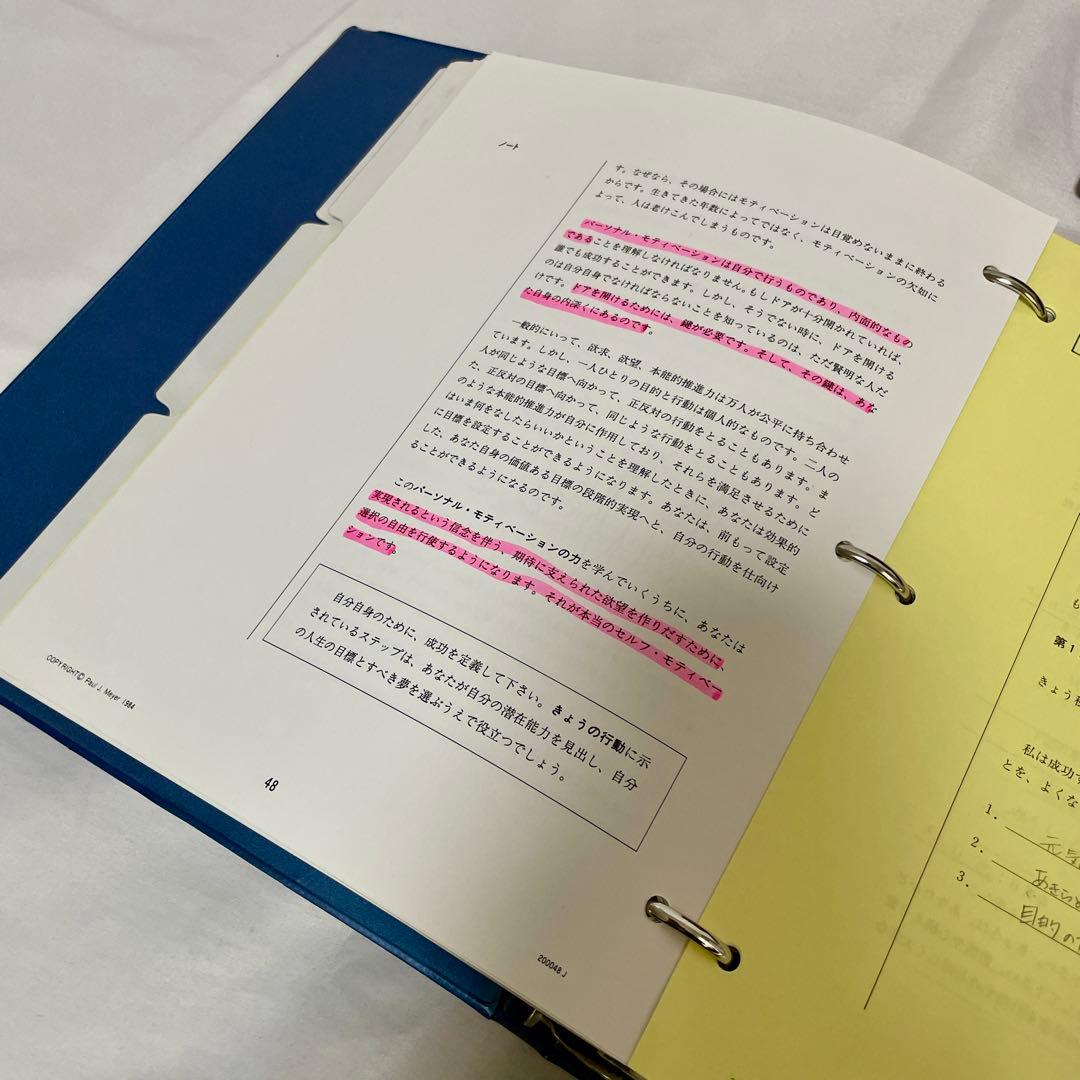 ノート
す。なぜなら、その場合にはモティベーションは目覚めないままに終わる
からです。生きてきた年数によってではなく、モティベーションの欠如に
よって、人は老けこんでしまうものです。
パーソナル・モティベーションは自分で行うものであり、内面的なもの
であることを理解しなければなりません。もしドアが十分開かれていれば、
誰でも成功することができます。しかし、そうでない時に、ドアを開ける
のは自分自身でなければならないことを知っているのは、ただ賢明な人だ
けです。ドアを開けるためには、鍵が必要です。そして、その鍵は、あな
た自身の内深くにあるのです。
一般的にいって、欲求、欲望、本能的推進力は万人が公平に持ち合わせ
ています。しかし、一人ひとりの目的と行動は個人的なものです。二人の
人が同じような目標へ向かって、正反対の行動をとることもあります。ま
た、正反対の目標へ向かって、同じような行動をとることもあります。ど
のような本能的推進力が自分に作用しており、それらを満足させるために
はいま何をなしたらいいかということを理解したときに、あなたは効果的
に目標を設定することができるようになります。あなたは、前もって設定
した、あなた自身の価値ある目標の段階的実現へと、自分の行動を仕向け
ることができるようになるのです。
このパーソナル・モティベーションの力を学んでいくうちに、あなたは
実現されるという信念を伴う、期待に支えられた欲望を作りだすために、
選択の自由を行使するようになります。それが本当のセルフ・モティベー
ションです。
自分自身のために、成功を定義して下さい。きょうの行動に示
されているステップは、あなたが自分の潜在能力を見出し、自分
の人生の目標とすべき夢を選ぶうえで役立つでしょう。
COPYRIGHT© Paul J. Meyer 1984
48
200048J
第1
きょう私
私は成功す
とを、よくな
1.
元気
2.
あきらめ
3.
目的の